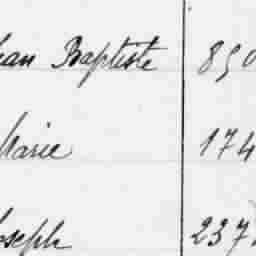 ean Baptiste 850
Marie 174
oseph 237